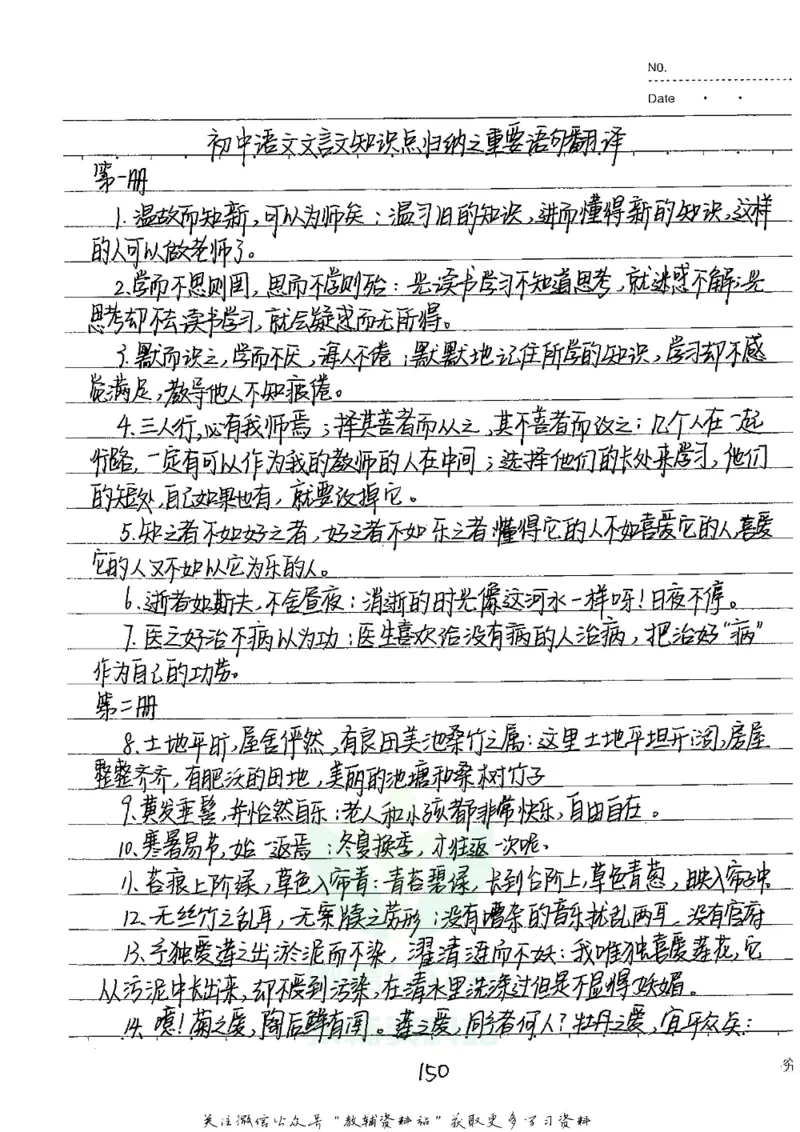 NO.
Date
初中语文文言文知识点归纳之重要语句翻译
第一册
1.温故而知新,可以为师矣:温习旧的知识,进而懂得新的知识,这样
的人可以做老师了。
2.学而不思则罔,思而不学则殆:光读书学习不知道思考,就迷惑不解;光
思考却不去读书学习,就会疑惑而无所得。
3.默而识之,学而不厌,诲人不倦:默默地记住所学的知识,学习却不感
觉满足,教导他人不知疲倦。
4.三人行,必有我师焉;择其善者而从之,其不善者而改之:几个人在一起
行路,一定有可以作为我的教师的人在中间;选择他们的长处来学习,他们
的短处,自己如果也有,就要改掉它。
5.知之者不如好之者,好之者不如乐之者:懂得它的人不如喜爱它的人,喜爱
它的人又不如以它为乐的人。
6.逝者如斯夫,不舍昼夜:消逝的时光像这河水一样呀!日夜不停。
7.医之好治不病以为功:医生喜欢给没有病的人治病,把治好"病"
作为自己的功劳。
第二册
8.土地平旷,屋舍俨然,有良田美池桑竹之属:这里土地平坦开阔,房屋
整整齐齐,有肥沃的田地,美丽的池塘和桑树竹子
9.黄发垂髫,并怡然自乐:老人和小孩都非常快乐,自由自在。
10.寒暑易节,始一返焉:冬夏换季,才往返一次呢。
11.苔痕上阶绿,草色入帘青:青苔碧绿,长到台阶上,草色青葱,映入帘子中.
12.无丝竹之乱耳,无案牍之劳形:没有嘈杂的音乐扰乱两耳,没有官府
13.予独爱莲之出淤泥而不染,濯清涟而不妖:我唯独喜爱莲花,它
从污泥中长出来,却不受到污染,在清水里洗涤过但是不显得妖媚。
14.噫!菊之爱,陶后鲜有闻。莲之爱,同予者何人?牡丹之爱,宜乎众矣:
150
关注微信公众号"教辅资料站"获取更多学习资料